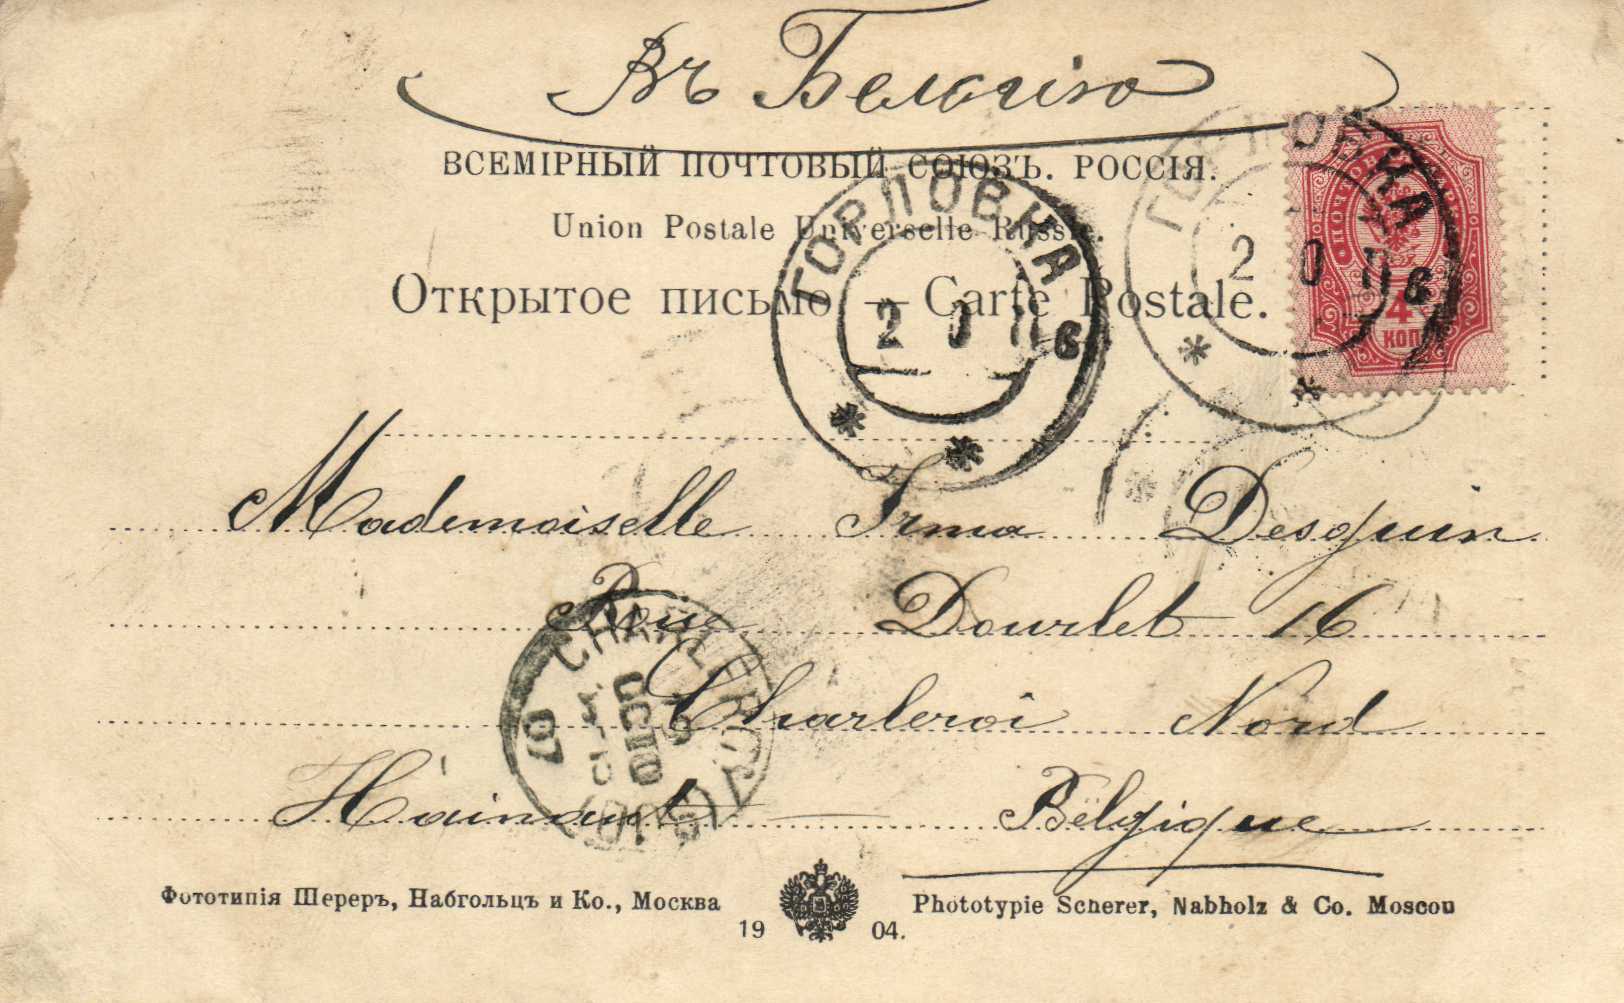 Въ Белогію
ВСЕМІРНЫЙ ПОЧТОВЫЙ СОЮЗЪ. РОССІЯ.
Union Postale Universelle Russie.
Открытое письмо — Carte Postale.
ГОРЛОВКА
2 0 11 6
ГОРЛОВКА
2 0 11 6
4
КОП
Mademoiselle Irma Desguin
Roue Dourlet 16
Charleroi Nord
Hainaut — Bélgique
CHARLEROY
07
Фототипія Шереръ, Набгольцъ и Ко., Москва
1904.
Phototypie Scherer, Nabholz & Co. Moscou